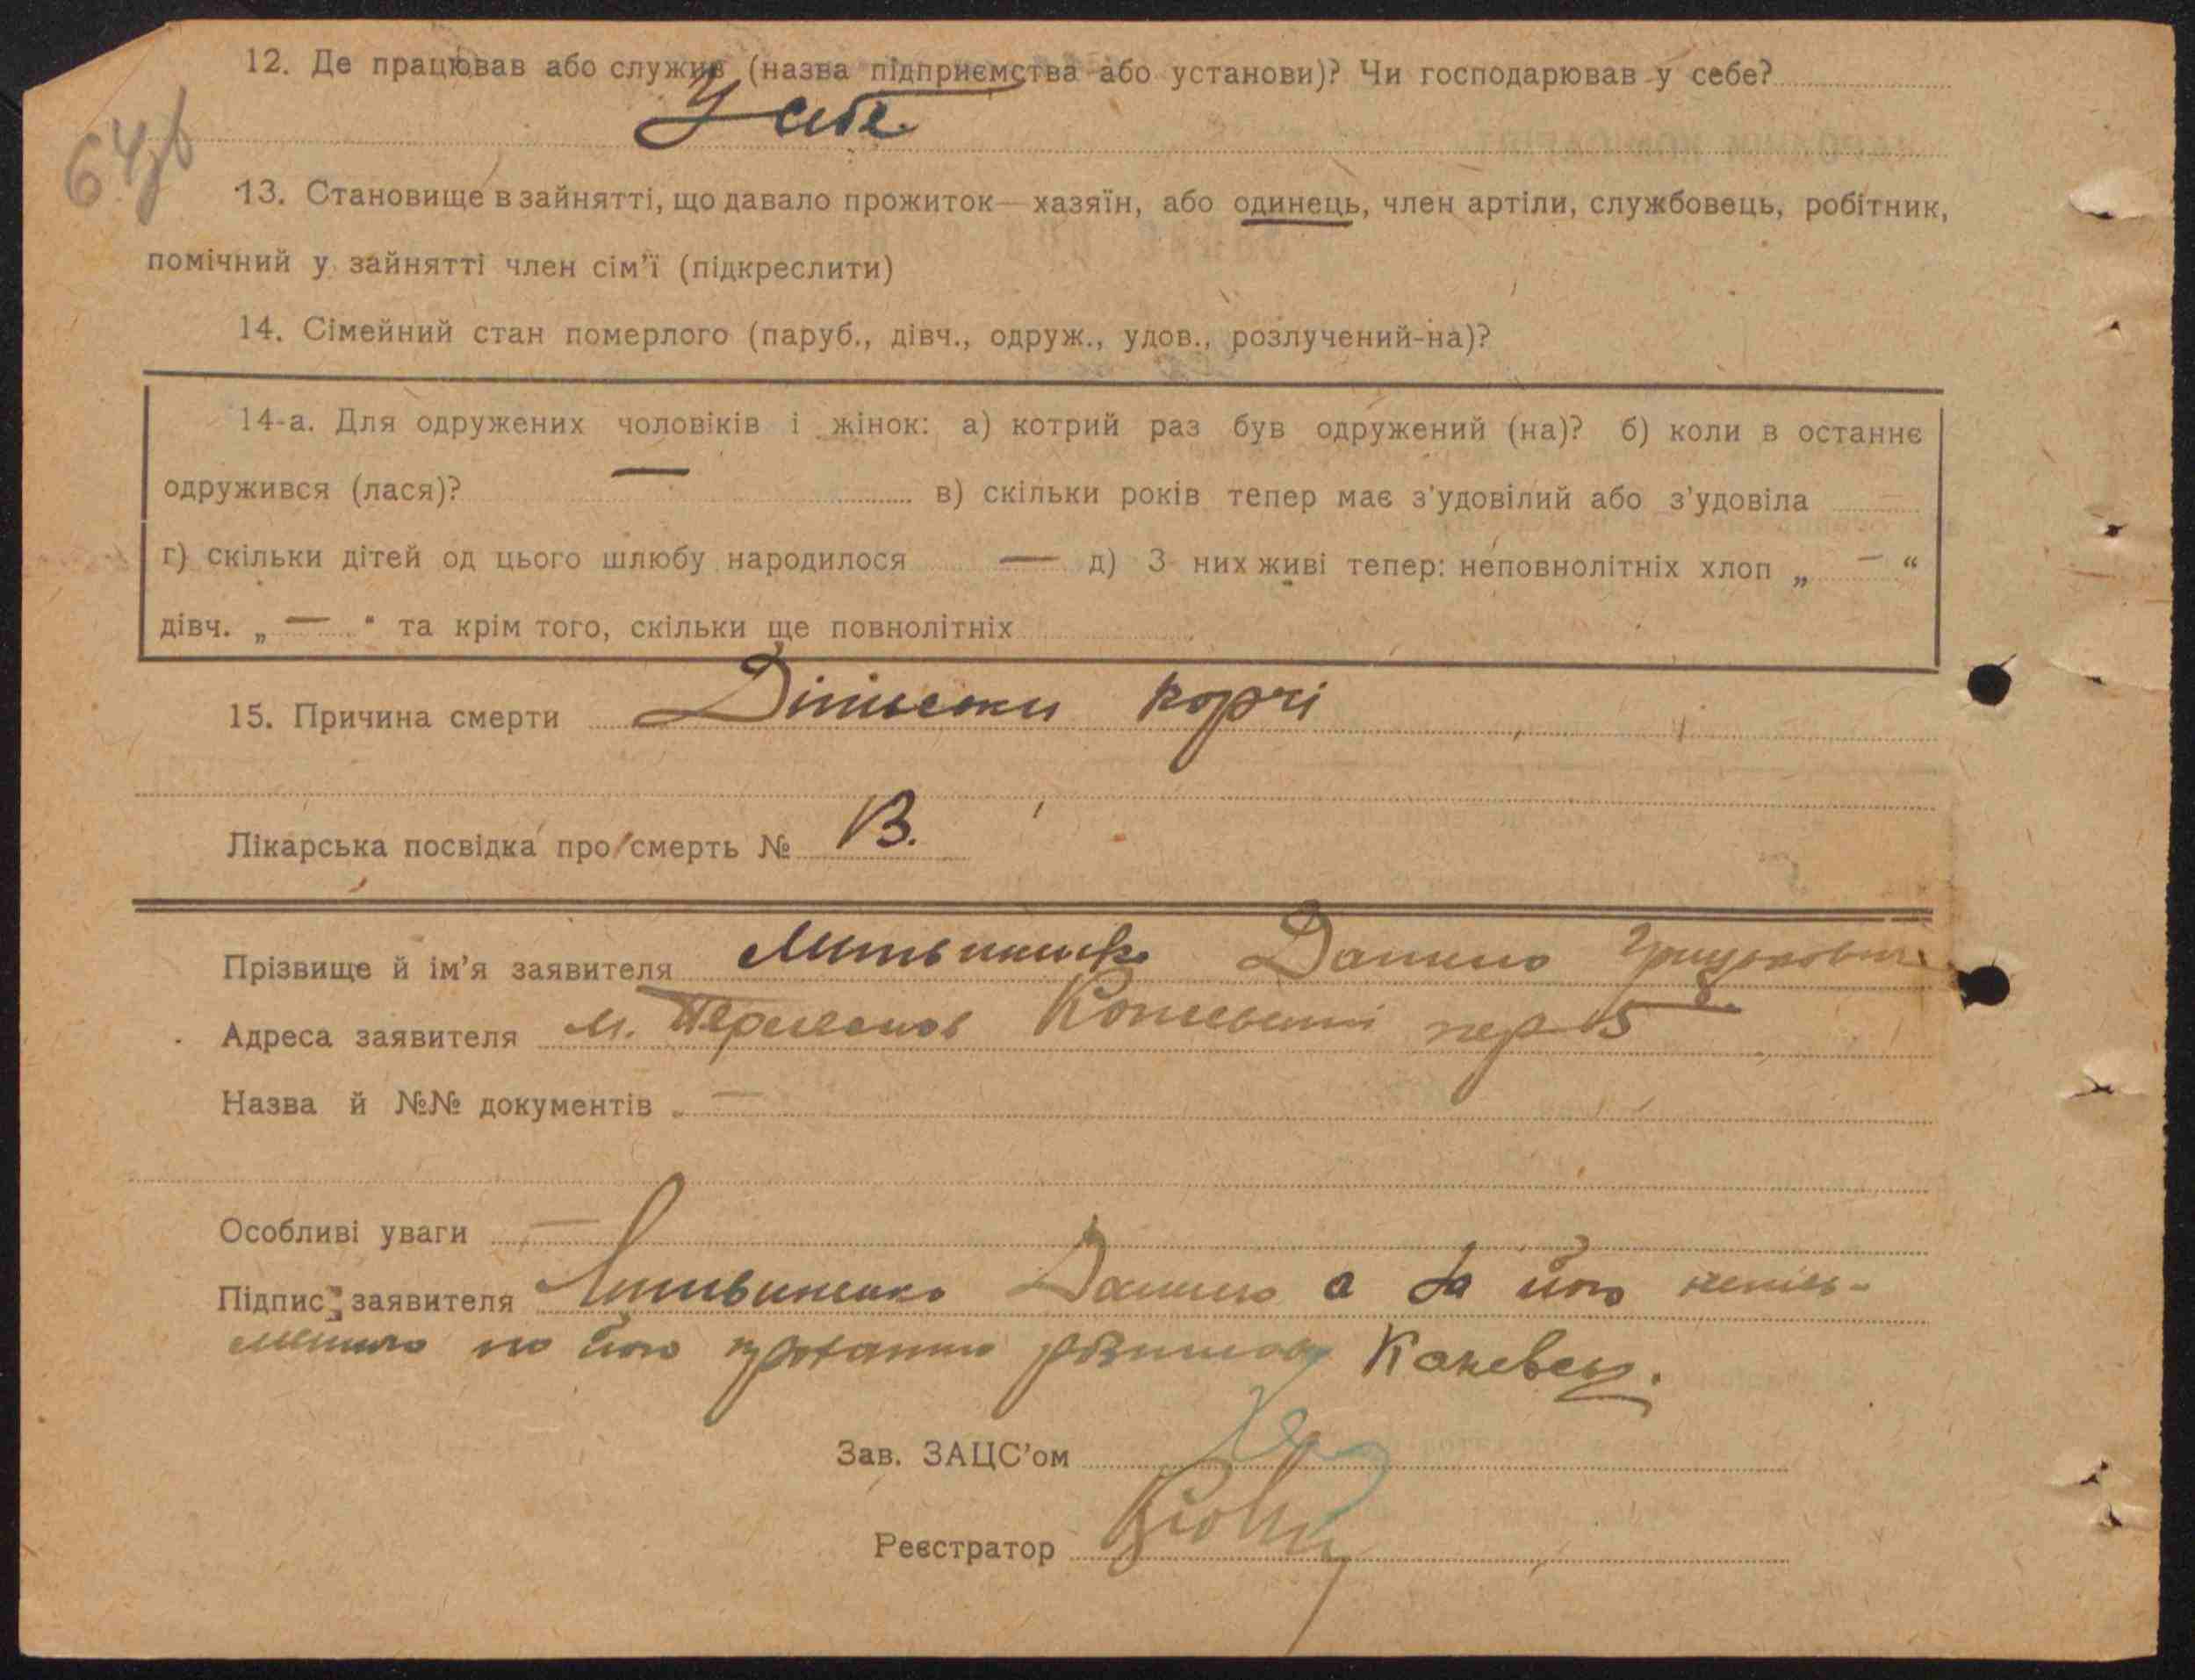 12. Де працював або служив (назва підприємства або установи)? Чи господарював у себе?
У себе
64зв
13. Становище в зайнятті, що давало прожиток — хазяїн, або одинець, член артіли, службовець, робітник,
помічний у зайнятті член сім'ї (підкреслити)
14. Сімейний стан померлого (паруб., дівч., одруж., удов., розлучений-на)?
14-а. Для одружених чоловіків і жінок: а) котрий раз був одружений (на)? б) коли в останнє
одружився (лася)? — в) скільки років тепер має з'удовілий або з'удовіла
г) скільки дітей од цього шлюбу народилося — д) З них живі тепер: неповнолітніх хлоп „ — “
дівч. „ — “ та крім того, скільки ще повнолітніх
15. Причина смерти Дитячи корчі
Лікарська посвідка про смерть № В.
Прізвище й ім'я заявителя Литвиненко Данило Грицькович
Адреса заявителя м. Переяслов пер 5
8.
Назва й №№ документів —
Особливі уваги —
Підпис заявителя Литвиненко Данило а за його непись-
менного по його проханню розписався Каневець.
Зав. ЗАЦС'ом
Реєстратор